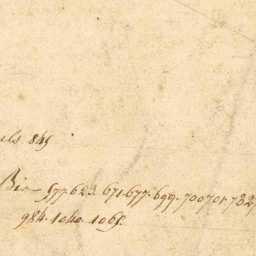 els 845
Bir 577. 623. 671. 677. 699. 700 701. 732
984. 1040. 1065.